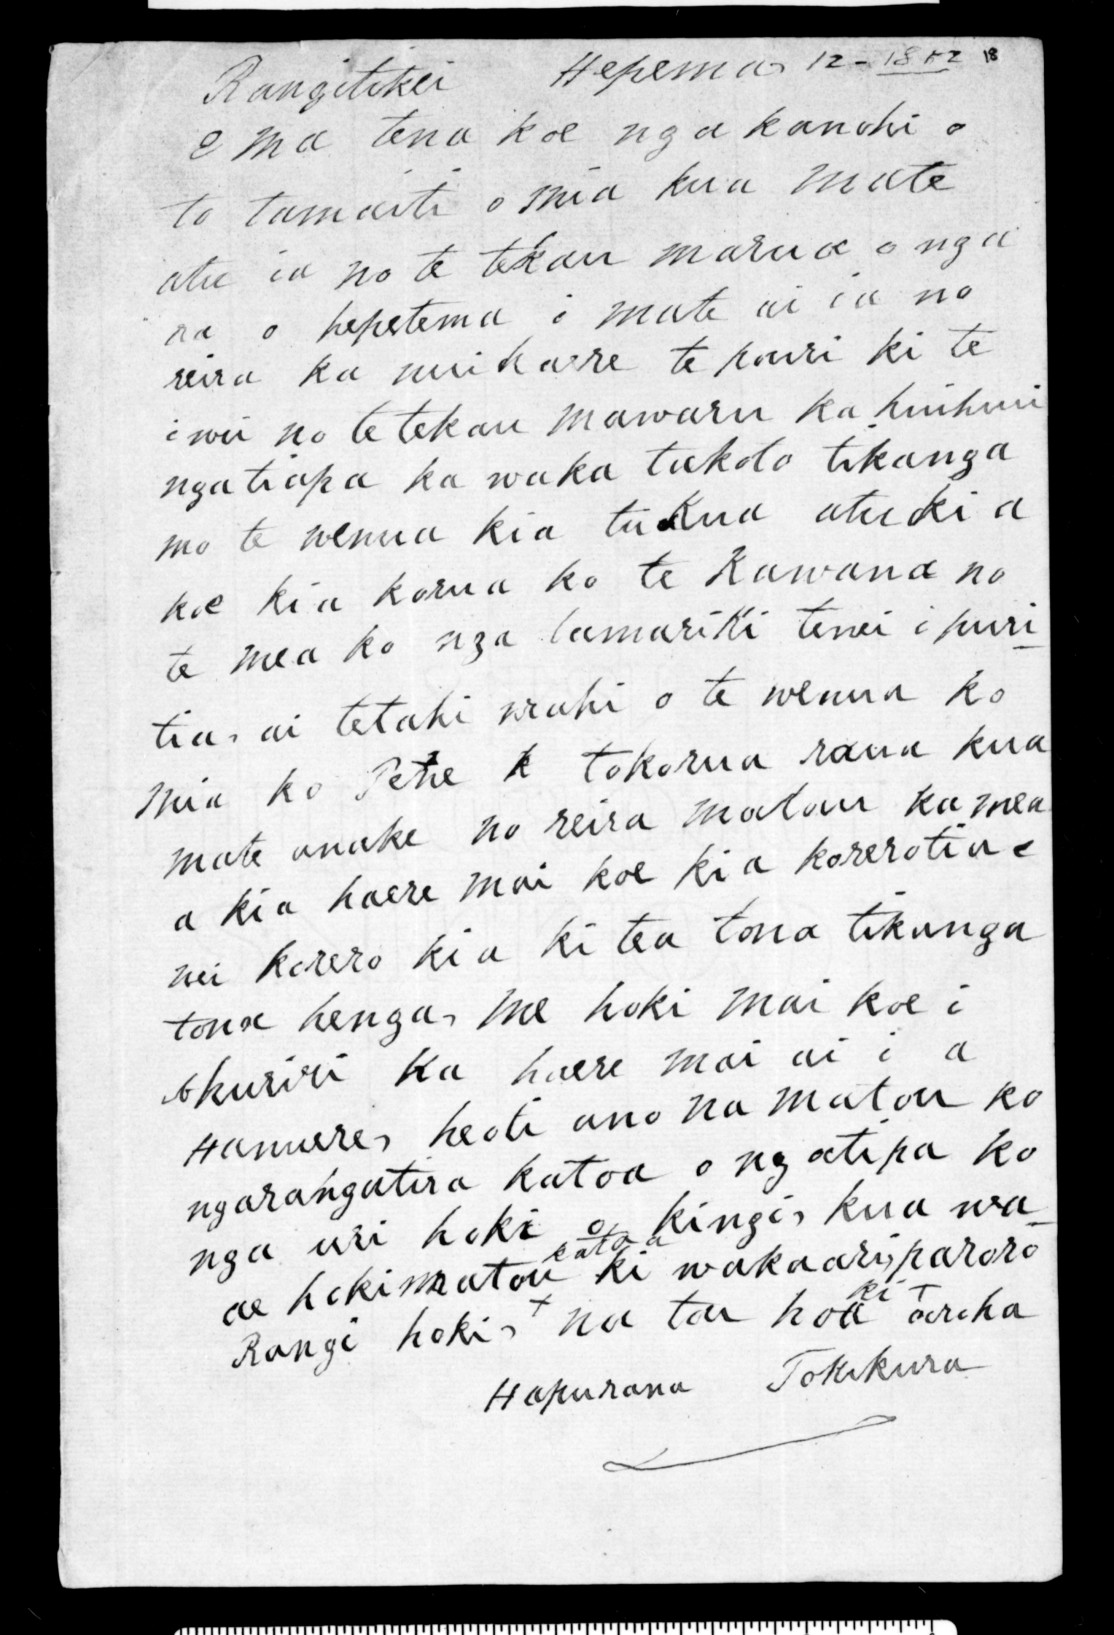 Rangitikei Hepema 12 - 1852 18
e Ma tena koe nga kanohi o
to tamaiti o Mia kua Mate
atu ia no te tekau marua o nga
ra o hepetema i Mate ai ia no
reira ka nui haere te pouri ki te
iwi no te tekau Mawaru ka huihui
ngatiapa ka waka takoto tikanga
mo te wenua kia tukua atu ki a
koe kia korua ko te Kawana no
te mea ko nga tamariki tenei i puri-
tia ai tetahi wahi o te wenua ko
Mia ko Pehe tokorua raua kua
mate anake no reira Matou ka mea
a kia haere Mai koe kia korerotia e
nei korero kia kitea tona tikanga
tona henga, Me hoki Mai koe i
Ahuriri Ka haere Mai ai i a
Hanuere, heoti ano na Matou ko
ngarangatira katoa o ngatipa ko
nga uri hoki o kingi, kua wa-
ae hoki matou katoa ki wakaari, paroro
Rangi hoki, + na tou hoa ki T aroha
Hapurana Tohikura